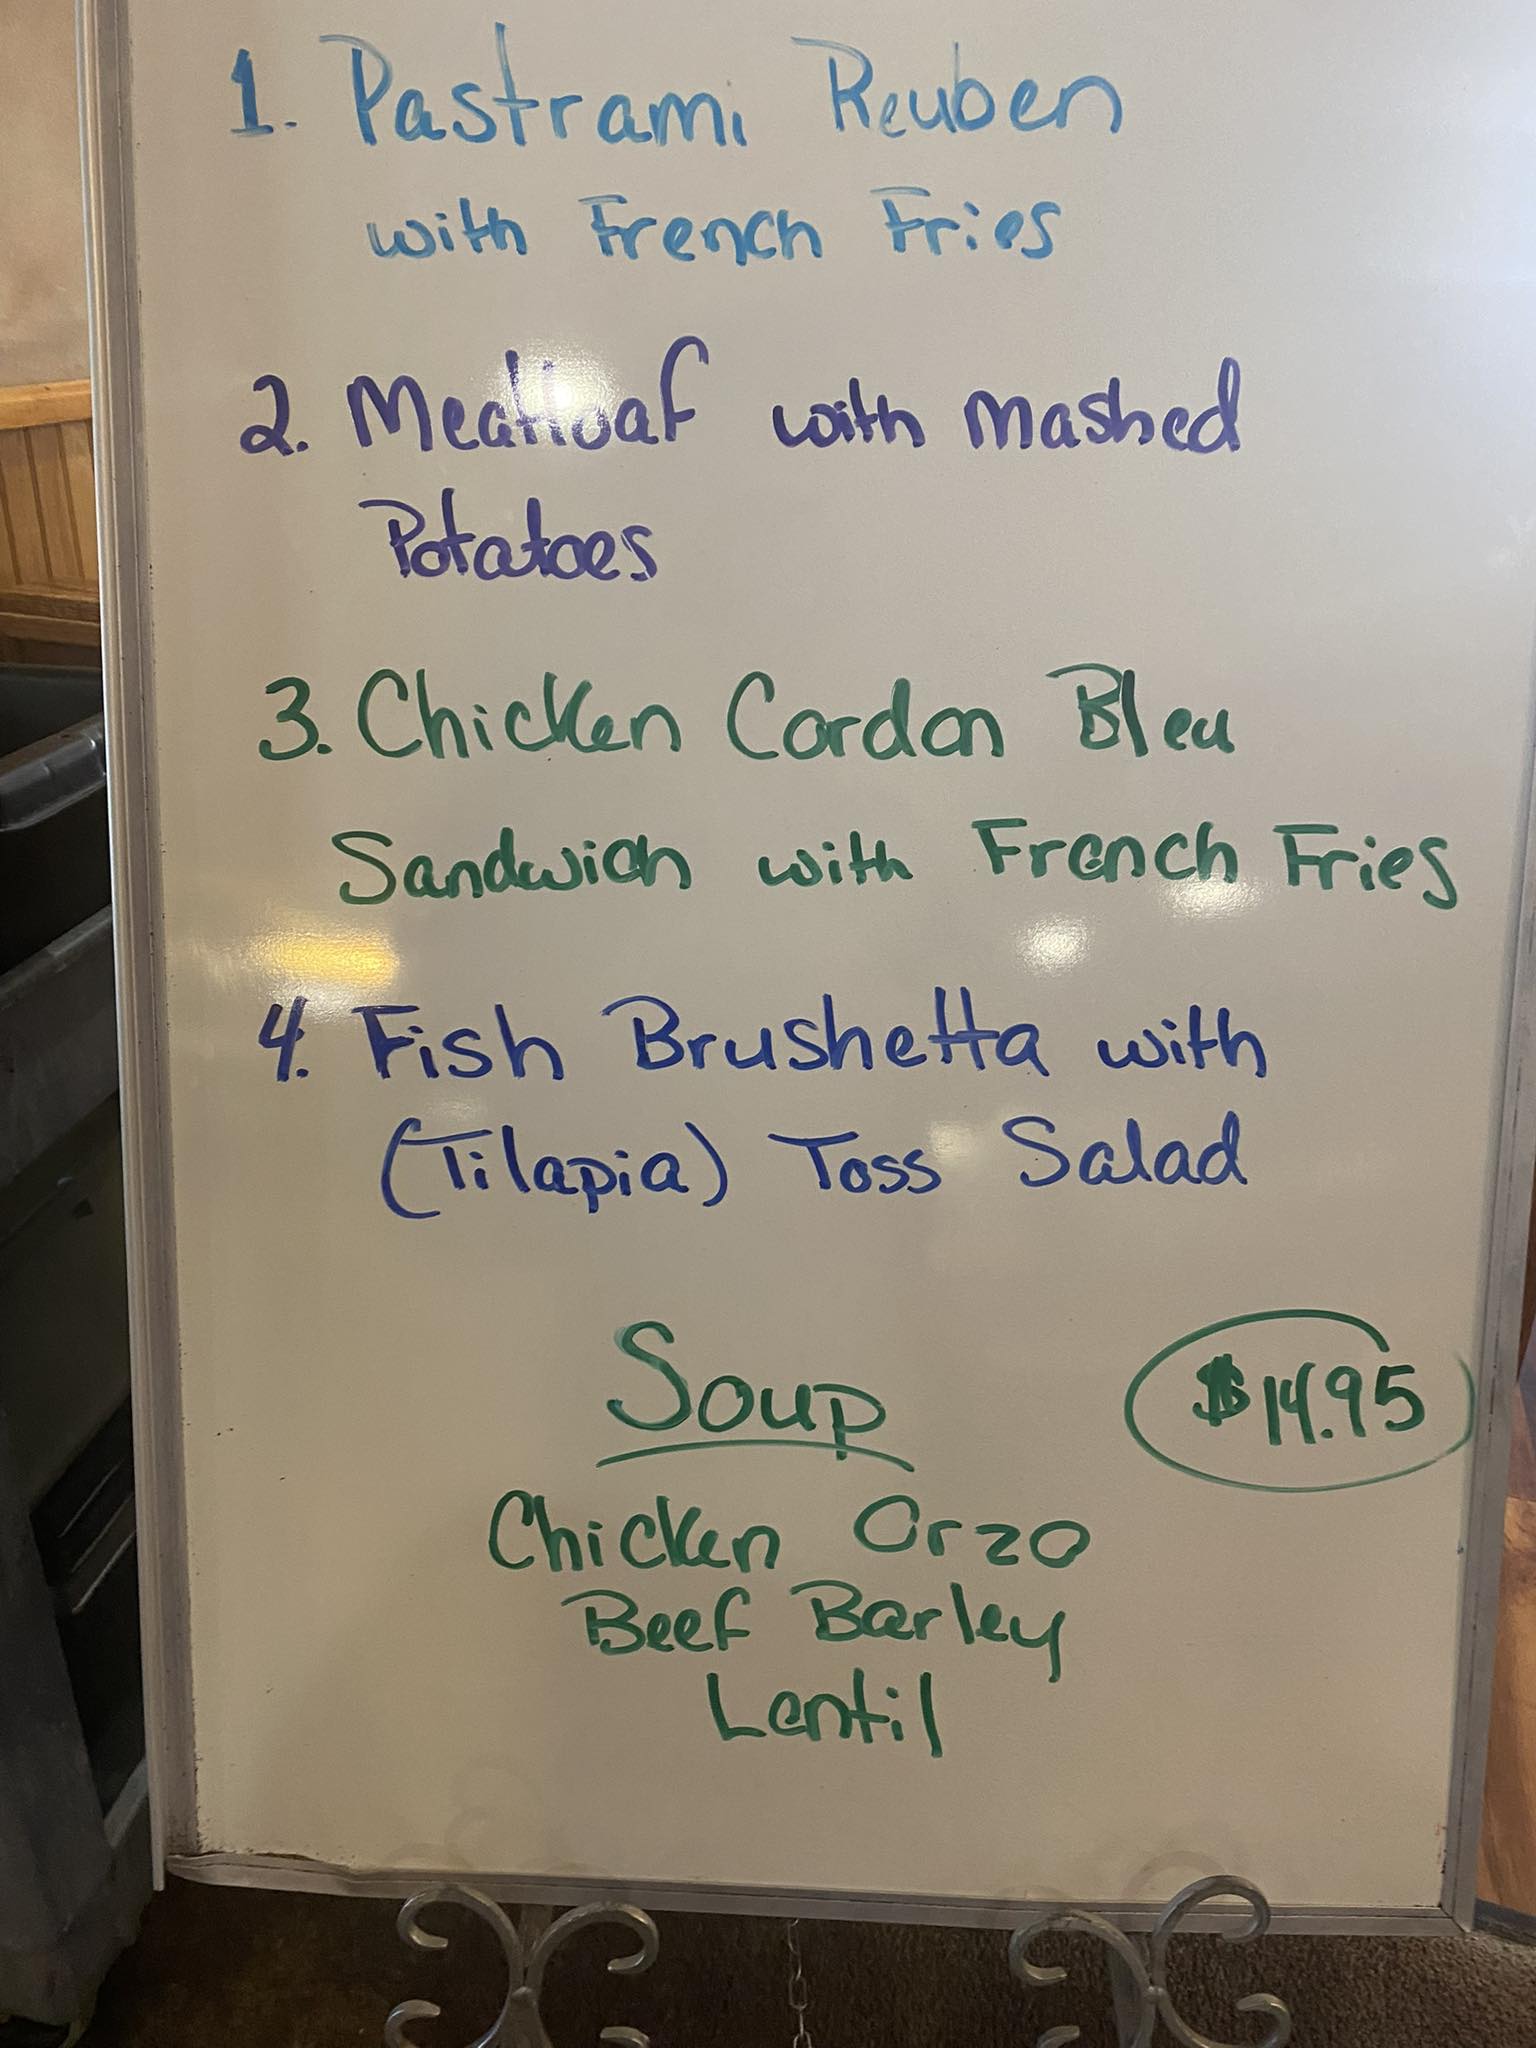 1. Pastrami Reuben
with French Fries
2. Meatloaf with mashed
Potatoes
3. Chicken Cordon Bleu
Sandwich with French Fries
4. Fish Brushetta with
(Tilapia) Toss Salad
Soup
$14.95
Chicken Orzo
Beef Barley
Lentil